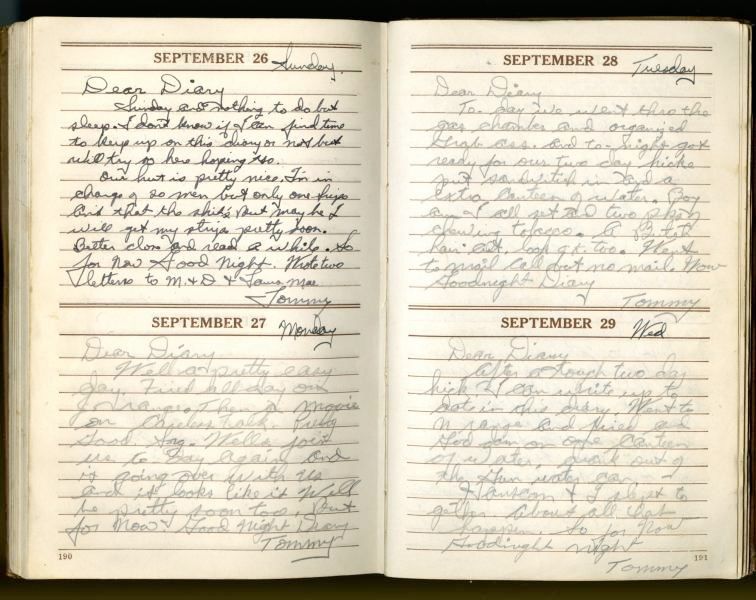 SEPTEMBER 26 Sunday.
Dear Diary
Sunday and nothing to do but
sleep. I don't know if I can find time
to keep up on this diary or not but
will try so here hoping so.
Our hut is pretty nice. I'm in
charge of 20 men but only one
and that the but maybe I
will get my strips pretty soon.
Better close and read a while. So
for Now Good Night. Wrote two
letters to M. & D &
Tommy
SEPTEMBER 27 Monday
Dear Diary
Well a pretty easy
day. Fired all day on
range. Then a movie
on careless talk. Pretty
Good. Sgt. Wells join
us to day again and
is going over with us
and it looks like it will
be pretty soon too, but
for Now Good Night Diary
Tommy
190
SEPTEMBER 28 Tuesday
Dear Diary
To-day we went thro the
gas chamber and organized
grab ass. and to-night got
ready for our two day hike
put sandwitch in and a
extra canteen of water. Boy
am I all set and two pkg of
chewing tobacco. A
hair cut look gt. too. Went
to mail call but no mail. Now
Goodnight Diary
Tommy
SEPTEMBER 29 Wed
Dear Diary
After a tough two day
hick I can write up to
date in this diary. Went to
N range and fired and
God damn on one canteen
of water, out of
the Gun water can
& I got to
gather about all that
happen. So for Now
Goodnight night
Tommy
191